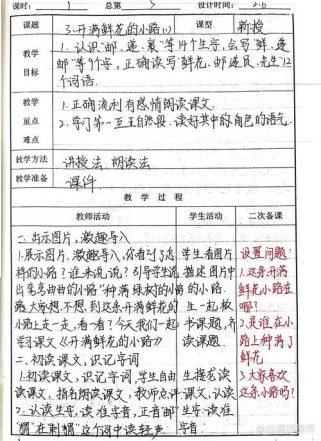 课时: 1 总第 5 设计时间: 2.6
课题 3.开满鲜花的小路(1) 课型 新授
教学目标
1.认识“邮、递、裹”等14个生字,会写“鲜、递
邮”等9个字,正确读写“鲜花、邮递员、先生”12
个词语.
教学重点难点
1.正确流利有感情朗读课文.
2.学习第一至五自然段.读好其中的角色的语气.
教学方法 讲授法.朗读法
教学准备 课件
教学过程
教师活动 学生活动 二次备课
一.出示图片,激趣导入
1.展示图片,激趣导入,你看到了怎
样的小路?谁来说说?引导学生说
出弯弯曲曲的小路”种满绿树的小
路大家想不想到这条开满鲜花的
小路上走一走,看一看?今天我们一起
学习课文《开满鲜花的小路》
二.初读课文,识记字词
1.初读课文,识记字词,学生自由
读课文.指名朗读课文,教师点评
2.认读生字,读准字音,正音“邮”
“猬”在刺猬”这个词中读轻声
学生看图片
描述图片中
的小路.
生一起板
书课题,齐
读课题.
生接龙读
课文.认读
生字.读准
字音.
设置问题:
1.这条开满
鲜花小路在
哪?
2.是谁在小
路上种满了
鲜花
3.大家喜欢
这条小路吗!